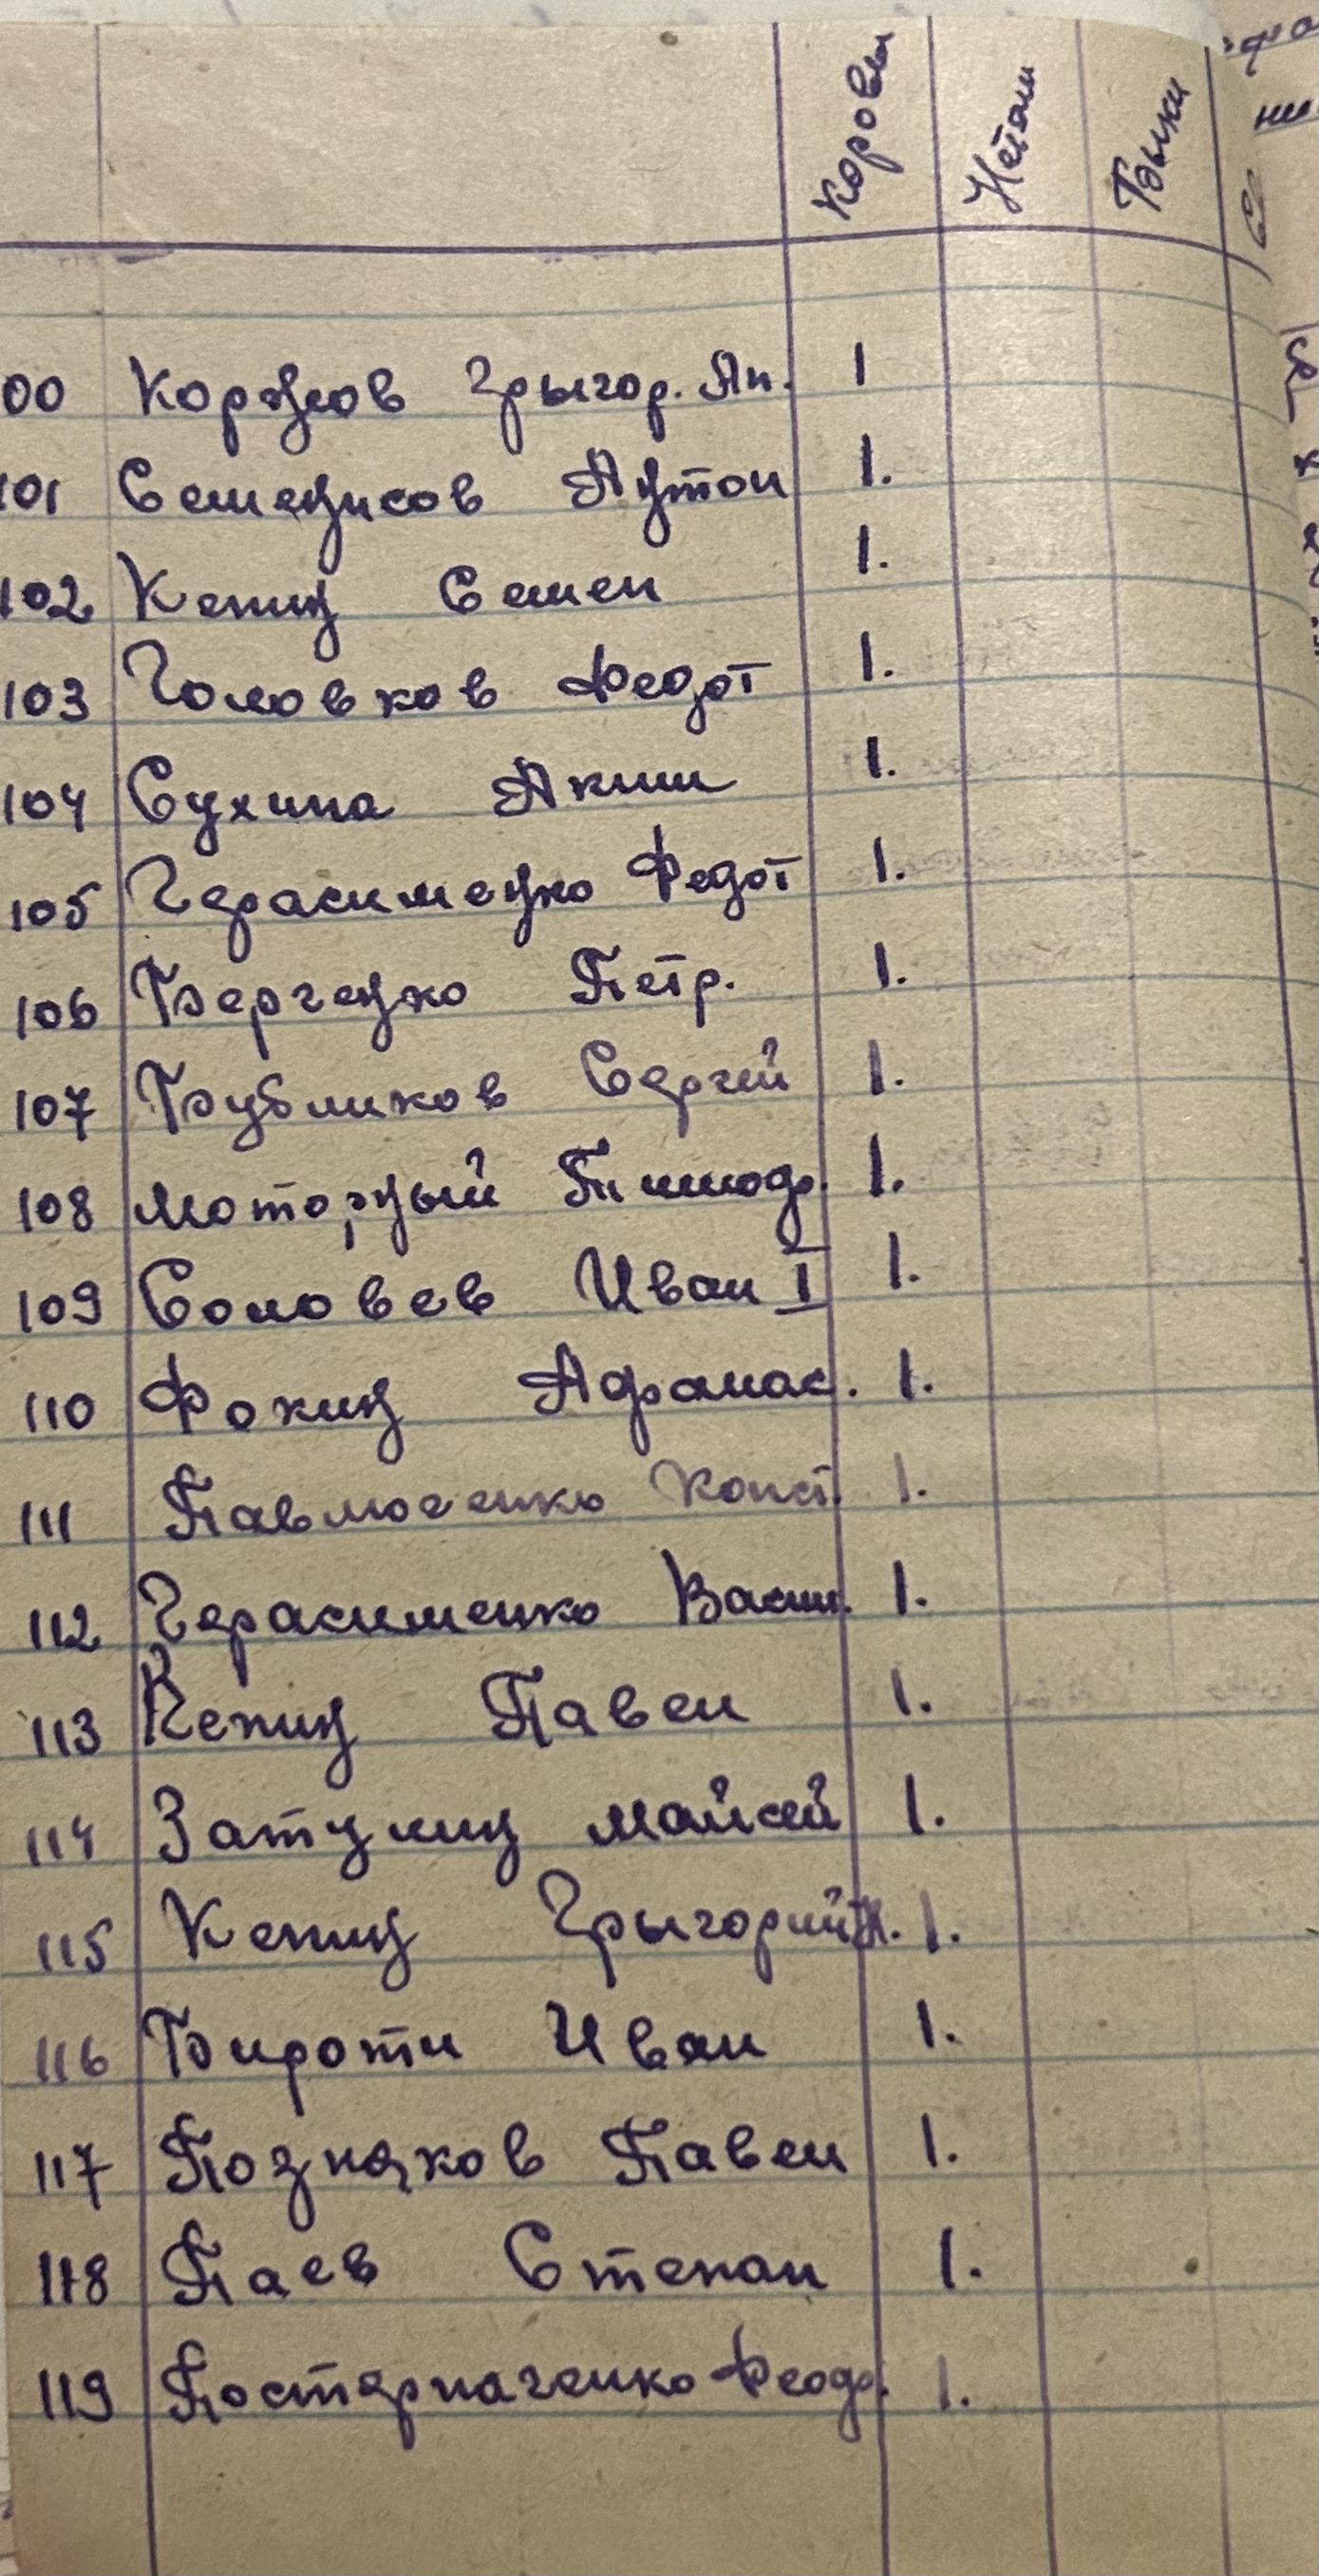 Коровы Нетели Быки
100 Коржов Грыгор. Ан. 1
101 Семенисов Антон 1.
102 Кепин Семен 1.
103 Головков Федот 1.
104 Сухина Аким 1.
105 Герасименко Федот 1.
106 Берченко Петр. 1.
107 Бубликов Сергей 1.
108 Моторный Тимоф. 1.
109 Соловев Иван I 1.
110 Фокин Афанас. 1.
111 Павлюченко Конст. 1.
112 Герасименко Васил. 1.
113 Кепин Павел 1.
114 Затулин Майсей 1.
115 Кепин Грыгорий 1.
116 Бироти Иван 1.
117 Позняков Павел 1.
118 Паев Степан 1.
119 Постарначенко Феод. 1.